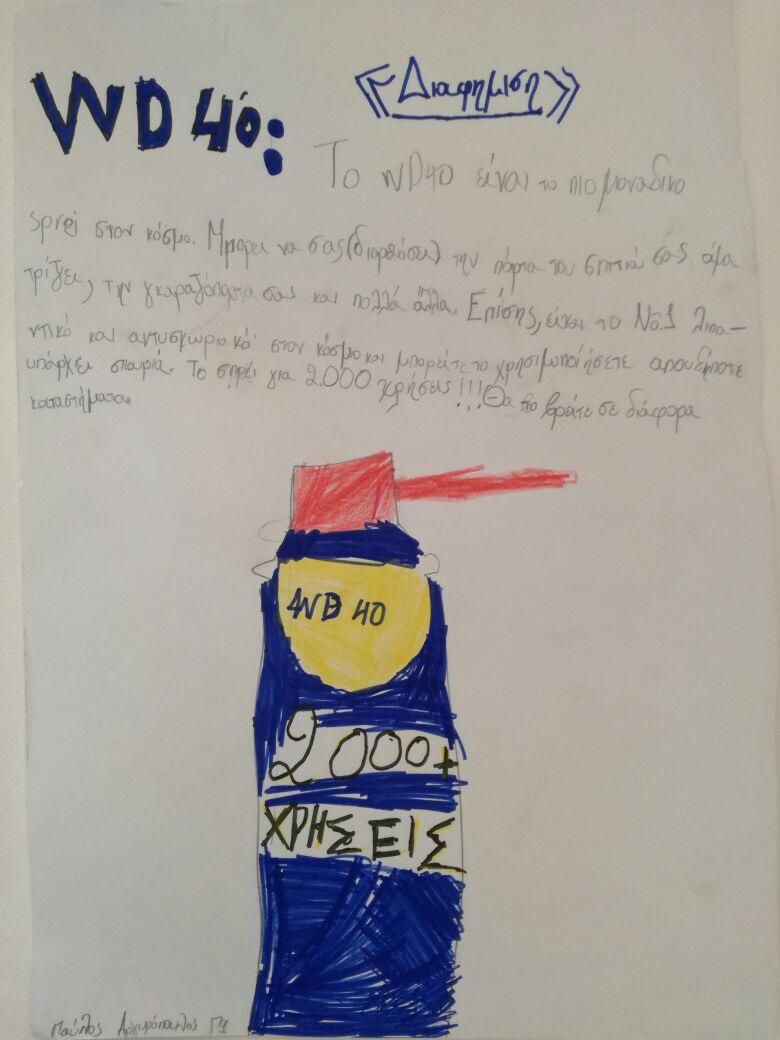 «Διαφημιση»
WD 40:
Το WD40 είναι το πιο μοναδικο
σπρεϊ στον κόσμο. Μπορεί να σας (διορθώσει) την πόρτα του σπιτιού σας άμα
τρίζει, την γκαραζόπορτα σας και πολλά άλλα. Επίσης, είναι το Νο.1 λιπα-
ντικό και αντισκωριακό στον κόσμο και μπορείτε το χρησιμωποιήσετε οπουδήποτε
υπάρχει σκουριά. Το σπρέι για 2.000 χρήσεις!!! Θα το βρείτε σε διάφορα
καταστήματα.
WD 40
2000+
ΧΡΗΣΕΙΣ
Παύλος Αργυρόπουλος Γ1